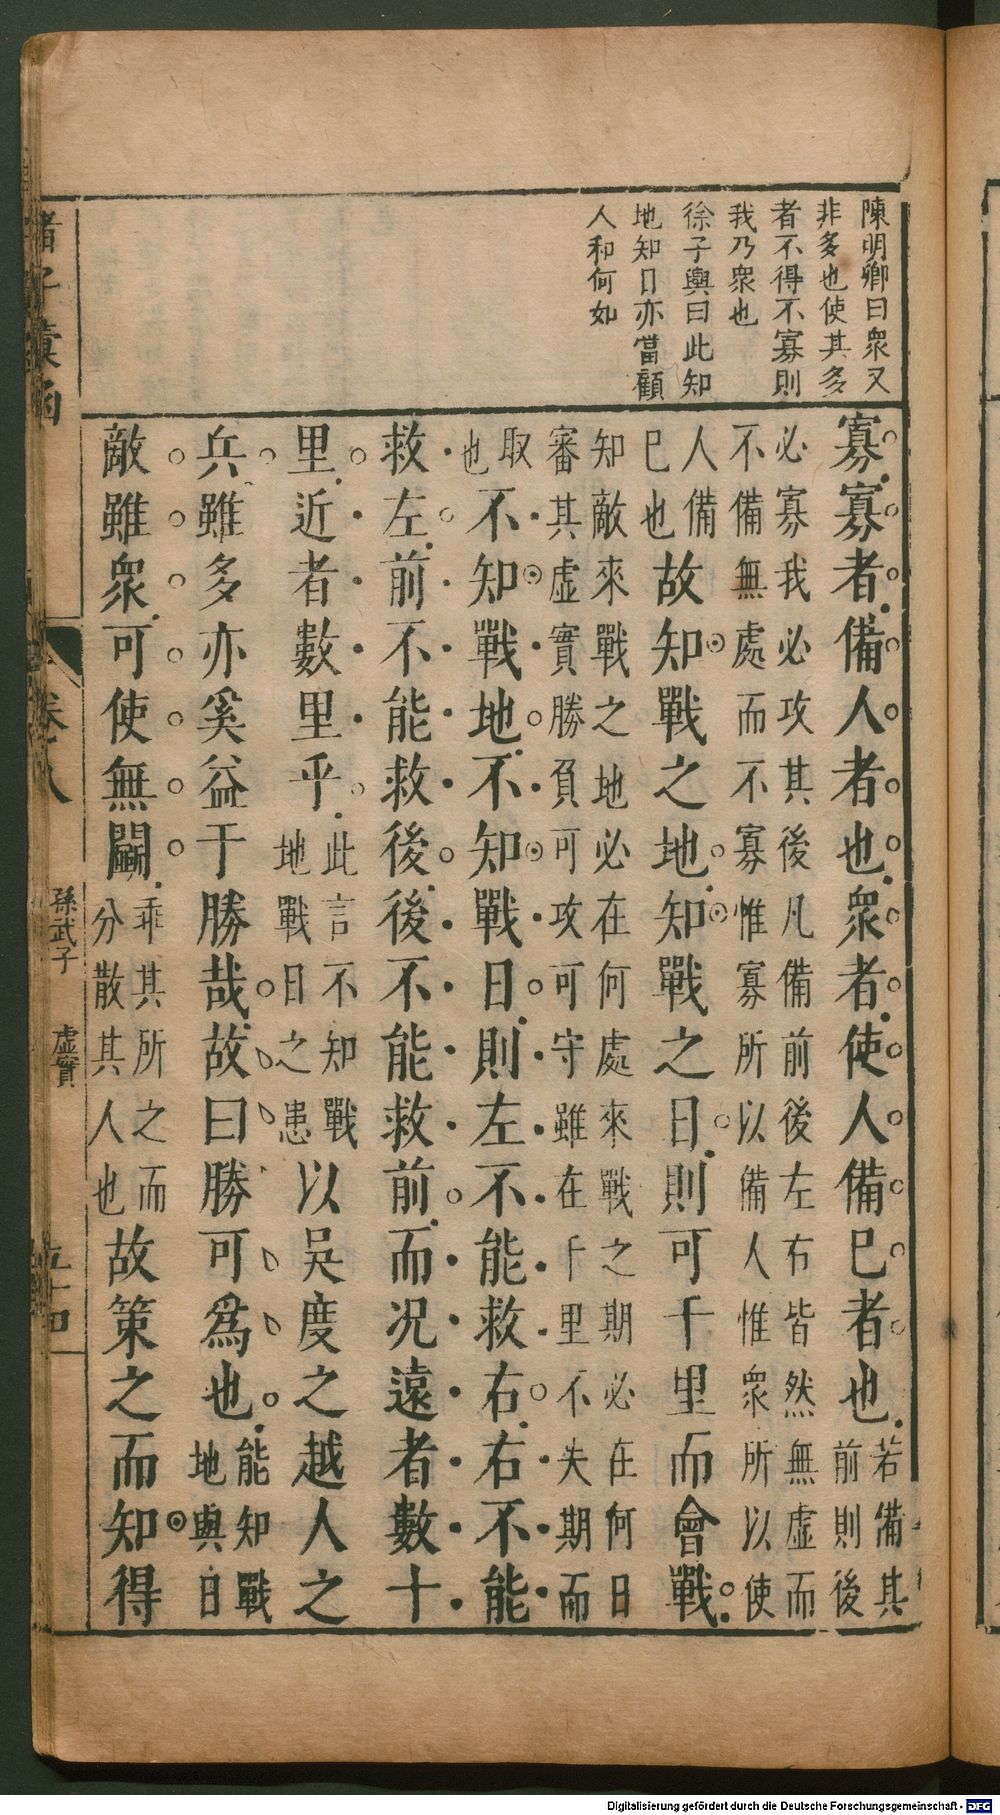 陳明卿曰衆又
非多也使其多
者不得不寡則
我乃衆也
徐子與曰此知
地知日亦當顧
人和何如
寡寡者備人者也衆者使人備巳者也若備其
前則後
必寡我必攻其後凡備前後左右皆然無虛而
不備無處而不寡惟寡所以備人惟衆所以使
人備
巳也故知戰之地知戰之日則可千里而會戰
知敵來戰之地必在何處來戰之期必在何日
審其虛實勝負可攻可守雖在千里不失期而
取
也不知戰地不知戰日則左不能救右右不能
救左前不能救後後不能救前而况遠者數十
里近者數里乎此言不知戰
地戰日之患以吳度之越人之
兵雖多亦奚益于勝哉故曰勝可爲也能知戰
地與日
敵雖衆可使無鬭乖其所之而
分散其人也故策之而知得
諸子彙函
卷八
孫武子
虛實
五十四
Digitalisierung gefördert durch die Deutsche Forschungsgemeinschaft - DFG